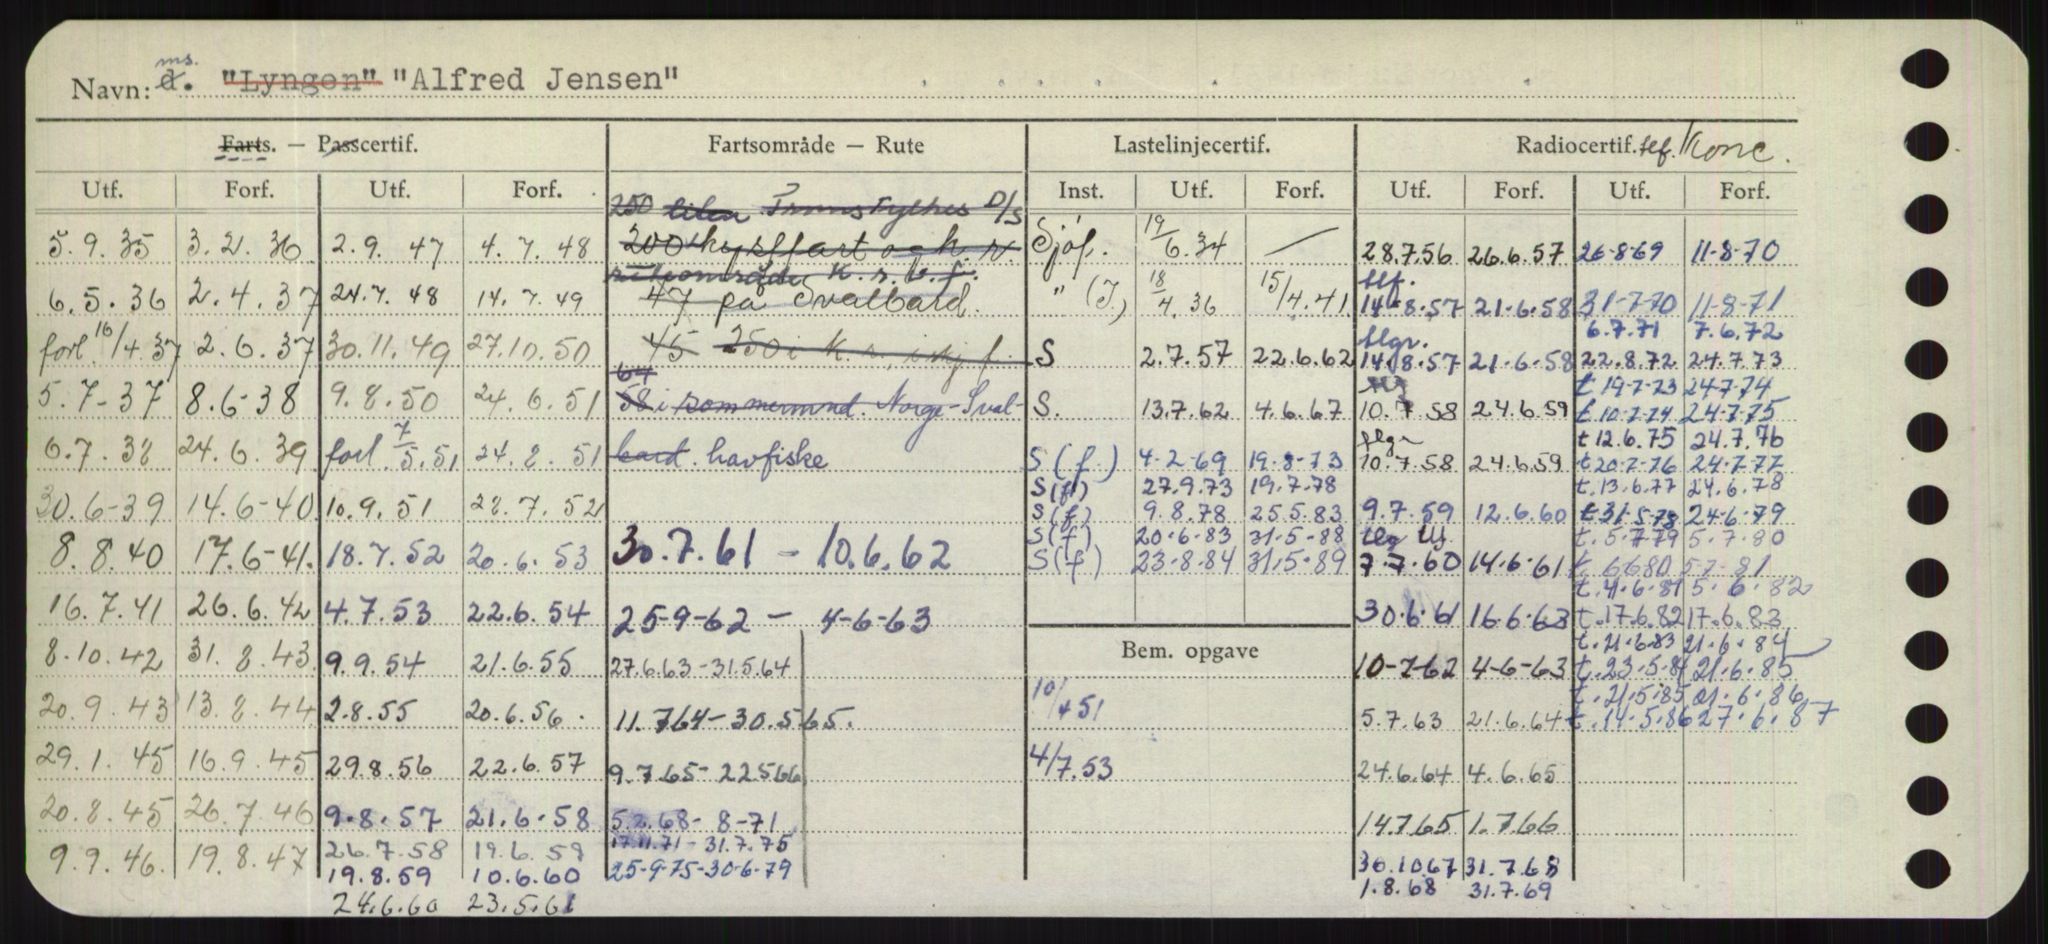 Navn: d. ms. "Lyngen" "Alfred Jensen"
Farts. — Passcertif. Fartsområde — Rute Lastelinjecertif. Radiocertif. tlf. Konc.
Utf. Forf. Utf. Forf. Inst. Utf. Forf. Utf. Forf. Utf. Forf.
250 Troms Fylkes D/S
5.9.35 3.2.36 2.9.47 4.7.48 200 kystfart og k. r. Sjøf. 19/6.34 — 28.7.56 26.6.57 26-8-69 11-8-70
tlf.
6.5.36 2.4.37 24.7.48 14.7.49 47 på Svalbard. " (I.) 18/4.36 15/4.41 14-8.57 21.6.58 31-7-70 11-8-71
tlgr. 6.7.71 7.6.72
forl. 16/4.37 2.6.37 30.11.49 27.10.50 45 250 i k. r. S 2.7.57 22.6.62 14.8.57 21-6-58 22.8.72 24.7.73
64 t 19-7-73 24-7-74
5.7-37 8.6-38 9.8.50 24.6.51 58 i sommermnd. Norge-Sval- S. 13.7.62 4.6.67 10.7.58 24.6.59 t.10-7-74 24-7-75
tlgr t 12.6.75 24.7.76
6.7.38 24.6.39 forl. 7/5.51 24.8.51 bard. havfiske S (f.) 4-2-69 19-8-73 10.7.58 24.6.59 t 20-7-76 24-7-77
S(f) 27.9.73 19.7.78 t.13.6.77 24.6.78
30.6-39 14.6-40 10.9.51 28.7.52 S(f) 9.8.78 25.5.83 9.7.59 12.6.60 t 31-5-78 24-6-79
S(f) 20-6-83 31-5-88 t.5-7-79 5.7.80
8.8.40 17.6-41. 18.7.52 20.6.53 30.7.61 — 10.6.62 S(f) 23-8-84 31.5-89 7.7.60 14.6.61 t.6680 5.7-81
t.4.6.81 5.6.82
16.7.41 26.6.42 4.7.53 22.6.54 25-9-62 — 4-6-63 30.6.61 16.6.63 t.17.6.82 17.6.83
t.21.6.83 21.6.84
8.10.42 31.8.43 9.9.54 21.6.55 27.6.63-31.5.64 Bem. opgave 10-7-62 4-6-63 t.23.5.84 21.6.85
t.21.5.85 21.6.86
20.9.43 13.8.44 2.8.55 20.6.56. 11.764-30.565. 10/4 51 5.7.63 21.6.64 t.14.5.86 27.6.87
29.1.45 16.9.45 29.8.56 22.6.57 9.7.65-22566 4/7.53 24.6.64 4.6.65
20.8.45 26.7.46 9.8.57 21.6.58 5.2.68-8-71 14.7.65 1.7.66
9.9.46. 19.8.47 26.7.58 19.6.59 17.11.71-31.7.75
19.8.59 10.6.60 25-9-75-30-6-79 30.1067 31.7.68
24.6.60 23.5.61 1.8.68 31.7.69